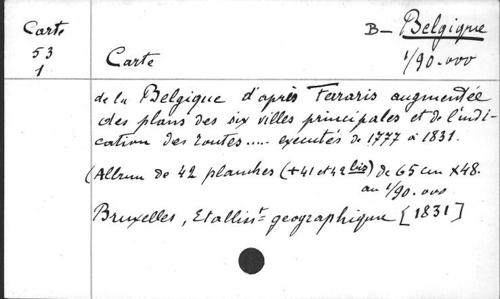 Carte
53
1
B - Belgique
1/90.000
Carte
de la Belgique d'après Fararis augmentée
des plans des six villes principales et de l'indi-
cation des routes..... executés de 1777 à 1831.
(Album de 42 planches (+41 et 42 bis) de 65 cm X 48.
au 1/90.000
Bruxelles, Etablist geographique [1831]